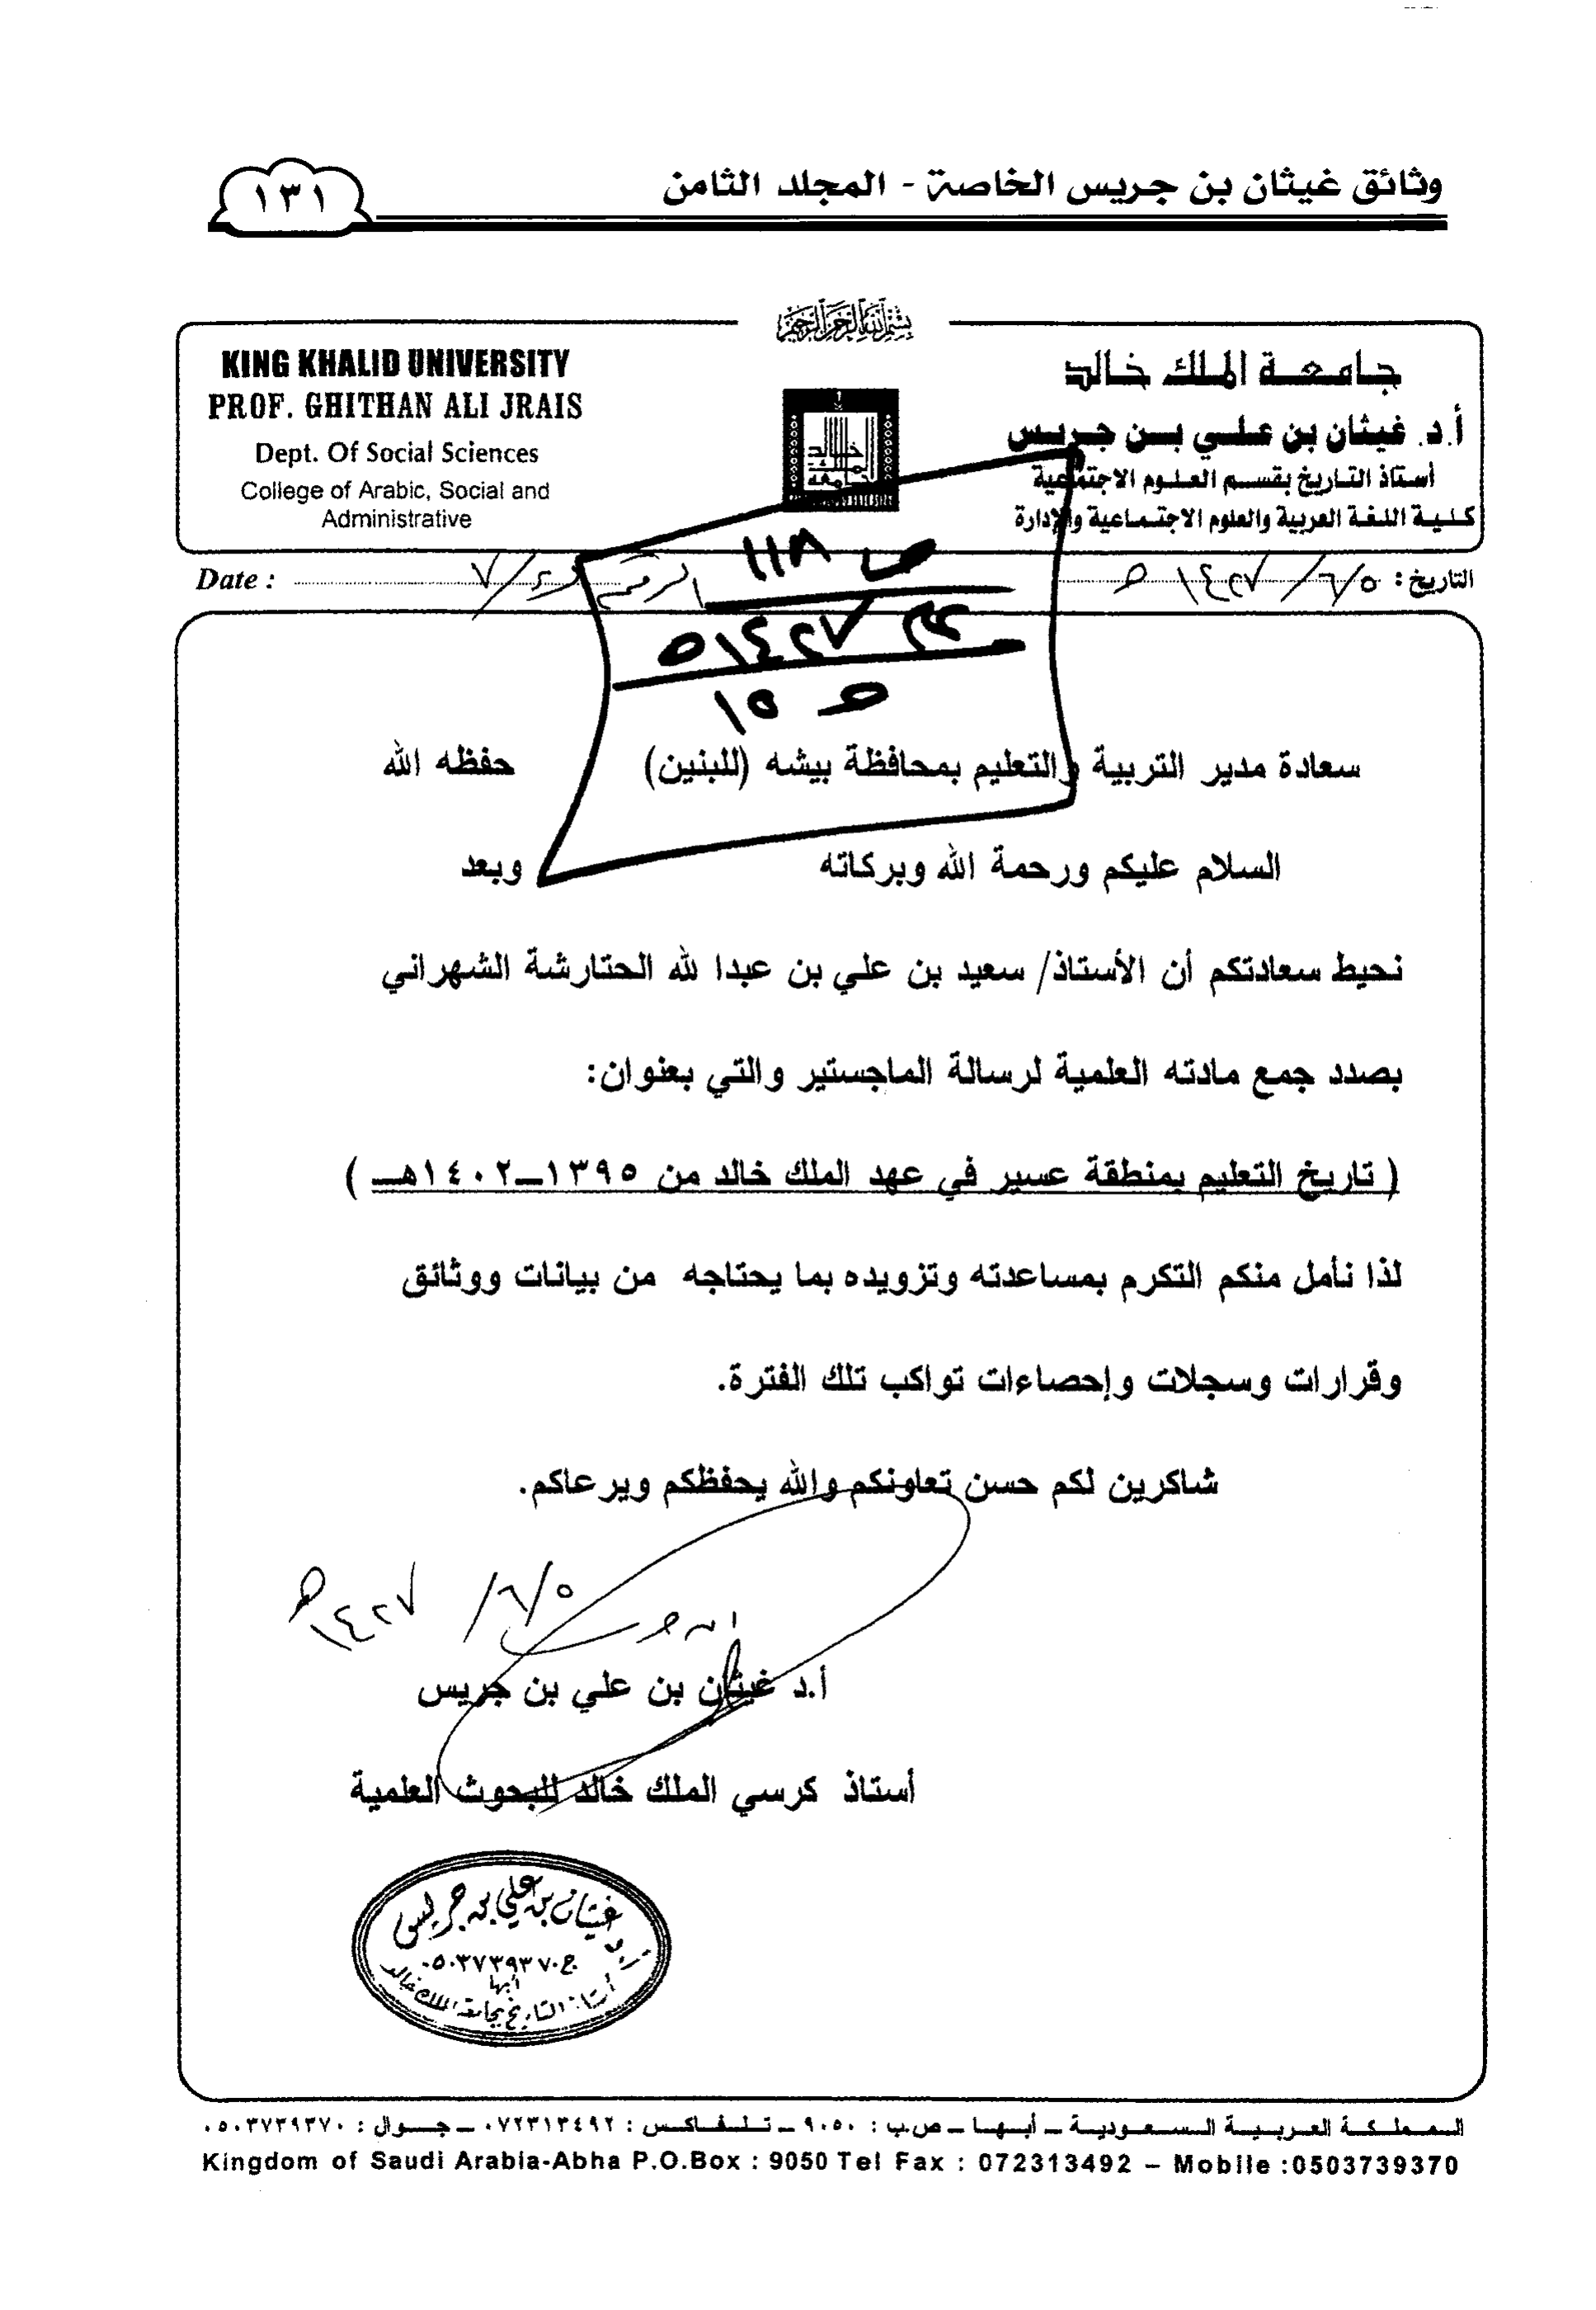 وثائق غيثان بن جريس الخاصة - المجلد الثامن
١٣١
بسم الله الرحمن الرحيم
جامعة الملك خالد
أ.د. غيثان بن علي بن جريس
أستاذ التاريخ بقسم العلوم الاجتماعية
كلية اللغة العربية والعلوم الاجتماعية والإدارة
KING KHALID UNIVERSITY
PROF. GHITHAN ALI JRAIS
Dept. Of Social Sciences
College of Arabic, Social and
Administrative
التاريخ : ٥/٦/١٤٢٧هـ
الرقم
Date :
ص ١١٨
١٤٢٧هـ
سعادة مدير التربية والتعليم بمحافظة بيشه (للبنين) حفظه الله
السلام عليكم ورحمة الله وبركاته وبعد
نحيط سعادتكم أن الأستاذ/ سعيد بن علي بن عبدا لله الحتارشة الشهراني
بصدد جمع مادته العلمية لرسالة الماجستير والتي بعنوان:
( تاريخ التعليم بمنطقة عسير في عهد الملك خالد من ١٣٩٥–١٤٠٢هـ )
لذا نأمل منكم التكرم بمساعدته وتزويده بما يحتاجه من بيانات ووثائق
وقرارات وسجلات وإحصاءات تواكب تلك الفترة.
شاكرين لكم حسن تعاونكم والله يحفظكم ويرعاكم.
٥/٦/١٤٢٧هـ
أ.د غيثان بن علي بن جريس
أستاذ كرسي الملك خالد للبحوث العلمية
أ.د غيثان بن علي بن جريس
ج.٠٥٠٣٧٣٩٣٧٠
أبها
أستاذ التاريخ بجامعة الملك خالد
المملكة العربية السعودية – أبها – ص.ب : ٩٠٥٠ – تلفاكس : ٠٧٢٣١٣٤٩٢ – جوال : ٠٥٠٣٧٣٩٣٧٠
Kingdom of Saudi Arabia-Abha P.O.Box : 9050 Tel Fax : 072313492 – Mobile :0503739370